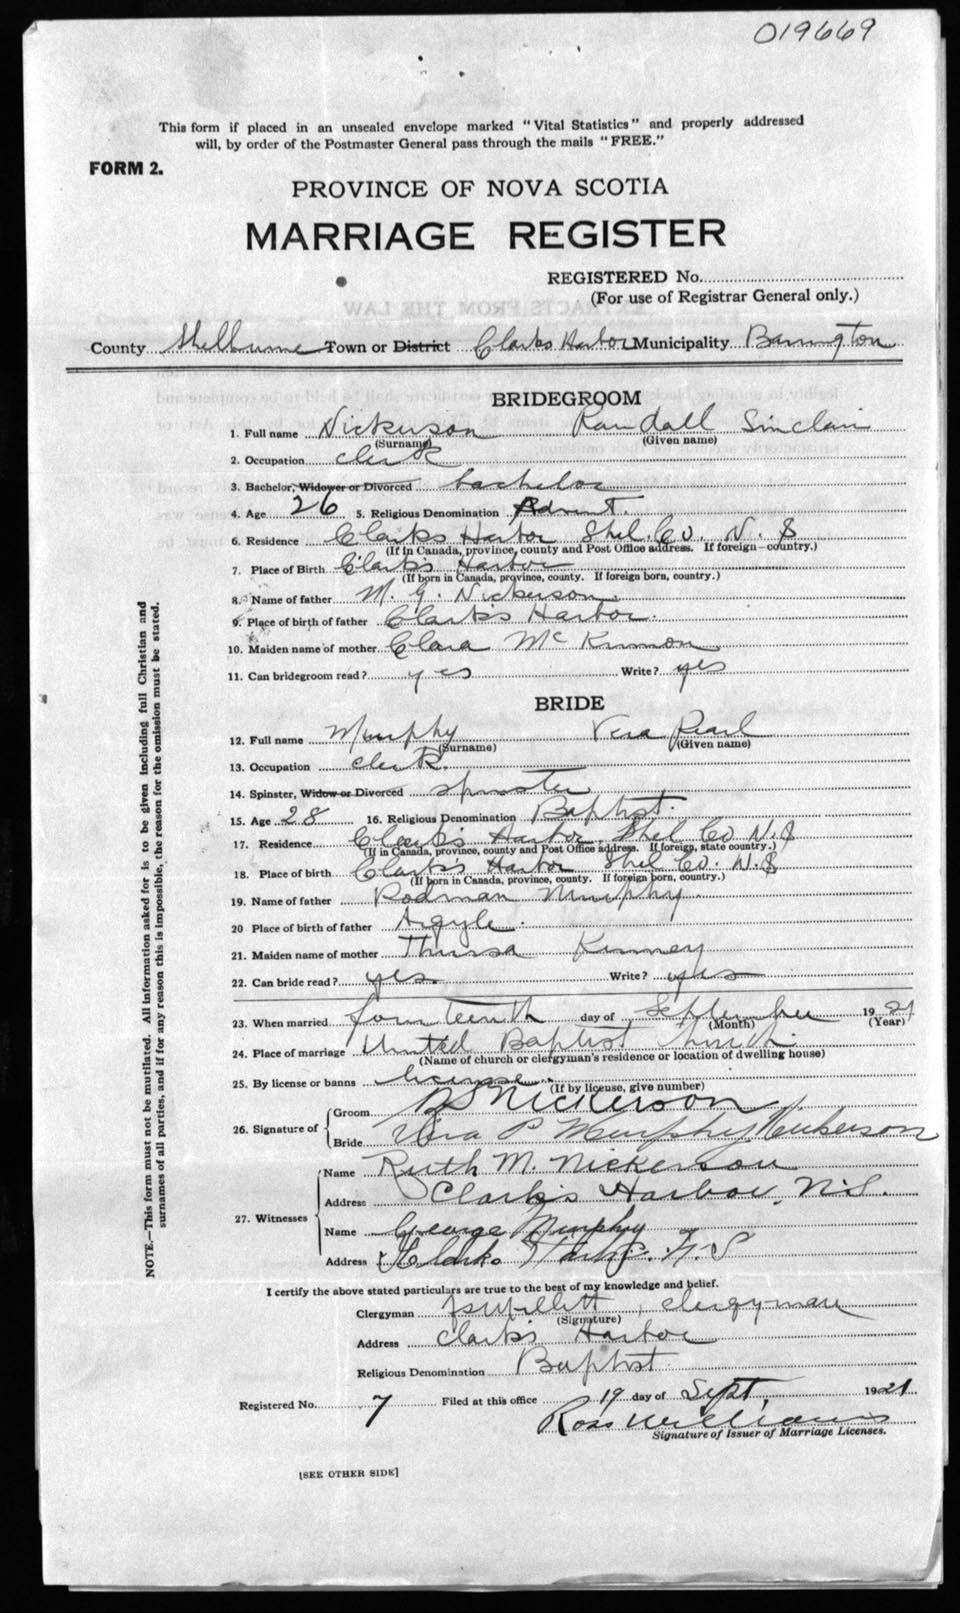 019669
This form if placed in an unsealed envelope marked "Vital Statistics" and properly addressed
will, by order of the Postmaster General pass through the mails "FREE."
FORM 2.
PROVINCE OF NOVA SCOTIA
MARRIAGE REGISTER
REGISTERED No.
(For use of Registrar General only.)
County Shelburne Town or District Clarks Harbor Municipality Barrington
BRIDEGROOM
1. Full name Nickerson Randall Sinclair
(Surname) (Given name)
2. Occupation clerk
3. Bachelor, Widower or Divorced bachelor
4. Age 26 5. Religious Denomination Advent.
6. Residence Clarks Harbor Shel. Co. N. S
(If in Canada, province, county and Post Office address. If foreign—country.)
7. Place of Birth Clark's Harbor
(If born in Canada, province, county. If foreign born, country.)
8. Name of father M. G. Nickerson
9. Place of birth of father Clark's Harbor.
10. Maiden name of mother Clara McKinnon
11. Can bridegroom read? yes Write? yes
BRIDE
12. Full name Murphy Vera Pearl
(Surname) (Given name)
13. Occupation clerk.
14. Spinster, Widow or Divorced spinster
15. Age 28 16. Religious Denomination Baptist.
17. Residence Clark's Harbor Shel Co N. S
(If in Canada, province, county and Post Office address. If foreign, state country.)
18. Place of birth Clark's Harbor Shel Co. N. S
(If born in Canada, province, county. If foreign born, country.)
19. Name of father Rodman Murphy.
20 Place of birth of father Argyle.
21. Maiden name of mother Thirsa Kenney
22. Can bride read? yes. Write? yes
23. When married fourteenth day of September 1921
(Month) (Year)
24. Place of marriage United Baptist Church
(Name of church or clergyman's residence or location of dwelling house)
25. By license or banns license.
(If by license, give number)
26. Signature of
Groom R S Nickerson
Bride Vera P Murphy Nickerson
27. Witnesses
Name Ruth M. Nickerson
Address Clark's Harbor, N.S.
Name George Murphy
Address Clarks N. S
I certify the above stated particulars are true to the best of my knowledge and belief.
Clergyman clergyman
(Signature)
Address Clark's Harbor
Religious Denomination Baptist
Registered No. 7 Filed at this office 19 day of Sept. 1921
Ross Williams
Signature of Issuer of Marriage Licenses.
[SEE OTHER SIDE]
NOTE.—This form must not be mutilated. All information asked for is to be given including full Christian and
surnames of all parties, and if for any reason this is impossible, the reason for the omission must be stated.